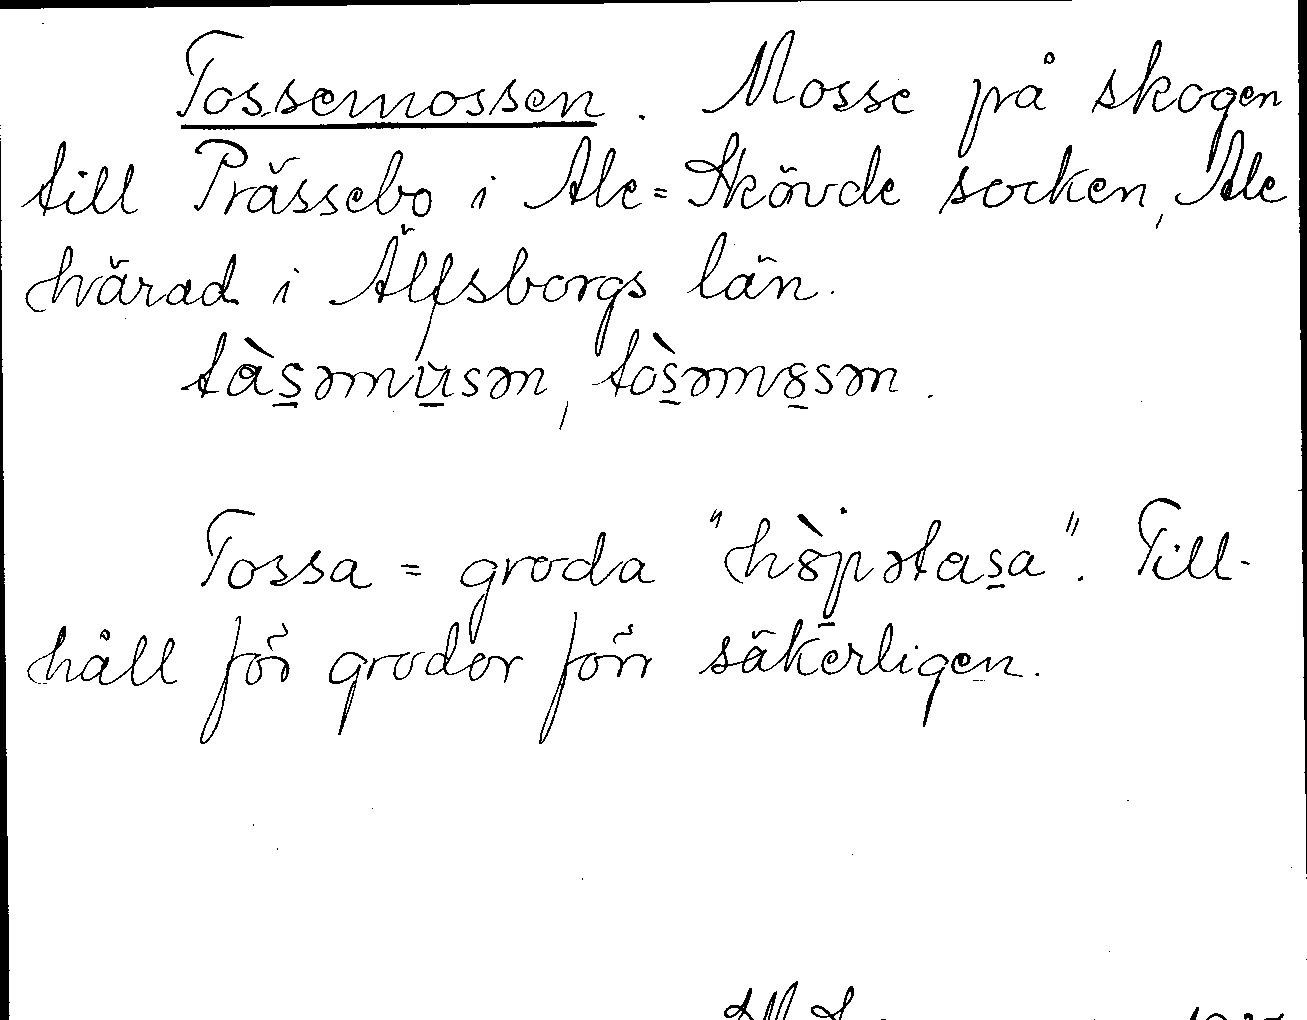 Tossemossen. Mosse på skogen
till Prässebo i Ale=Skövde socken, Ale
härad i Älfsborgs län.
tàs̲əmu̲sən, tòs̲əms̲sən.
Tossa = groda "hòp̲ətas̲a". Till-
håll för grodor förr säkerligen.